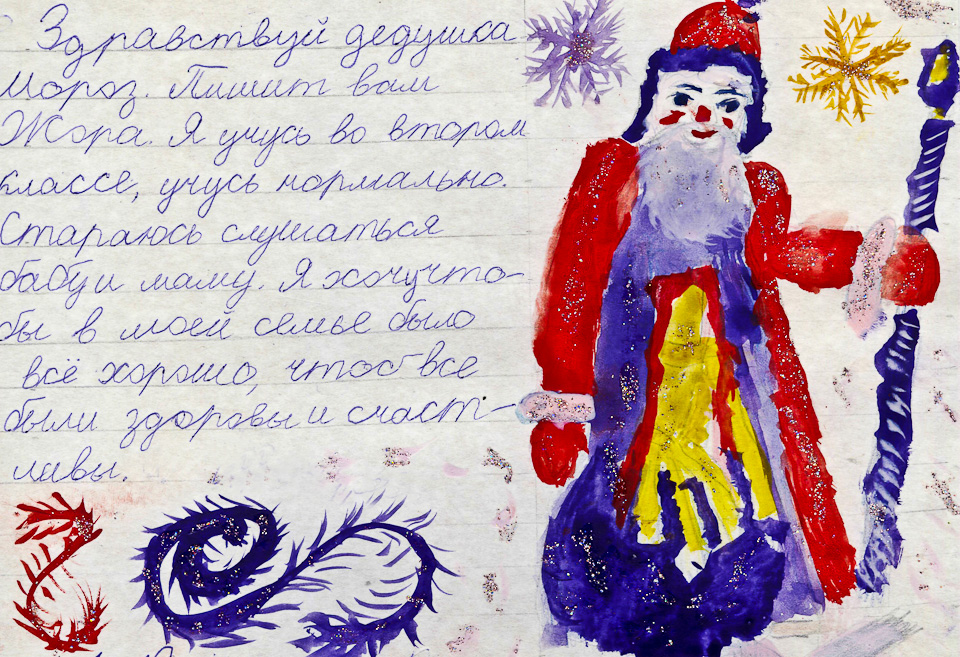 Здравствуй дедушка
Мороз. Пишит вам
Жора. Я учусь во втором
классе, учусь нормально.
Стараюсь слушаться
бабу и маму. Я хочу что-
бы в моей семье было
всё хорошо, чтоб все
были здоровы и счаст-
ливы.